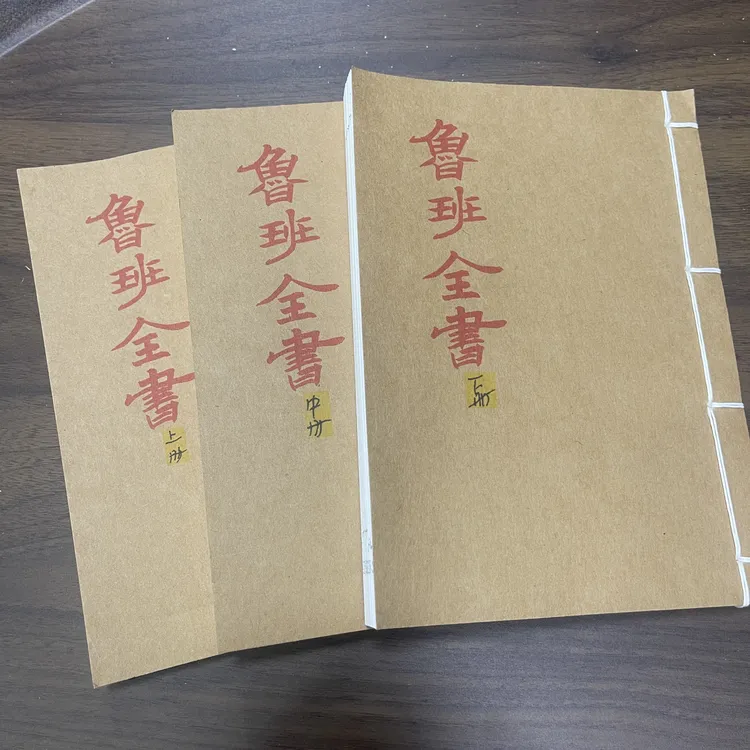 魯班全書
上册
魯班全書
中册
魯班全書
下册